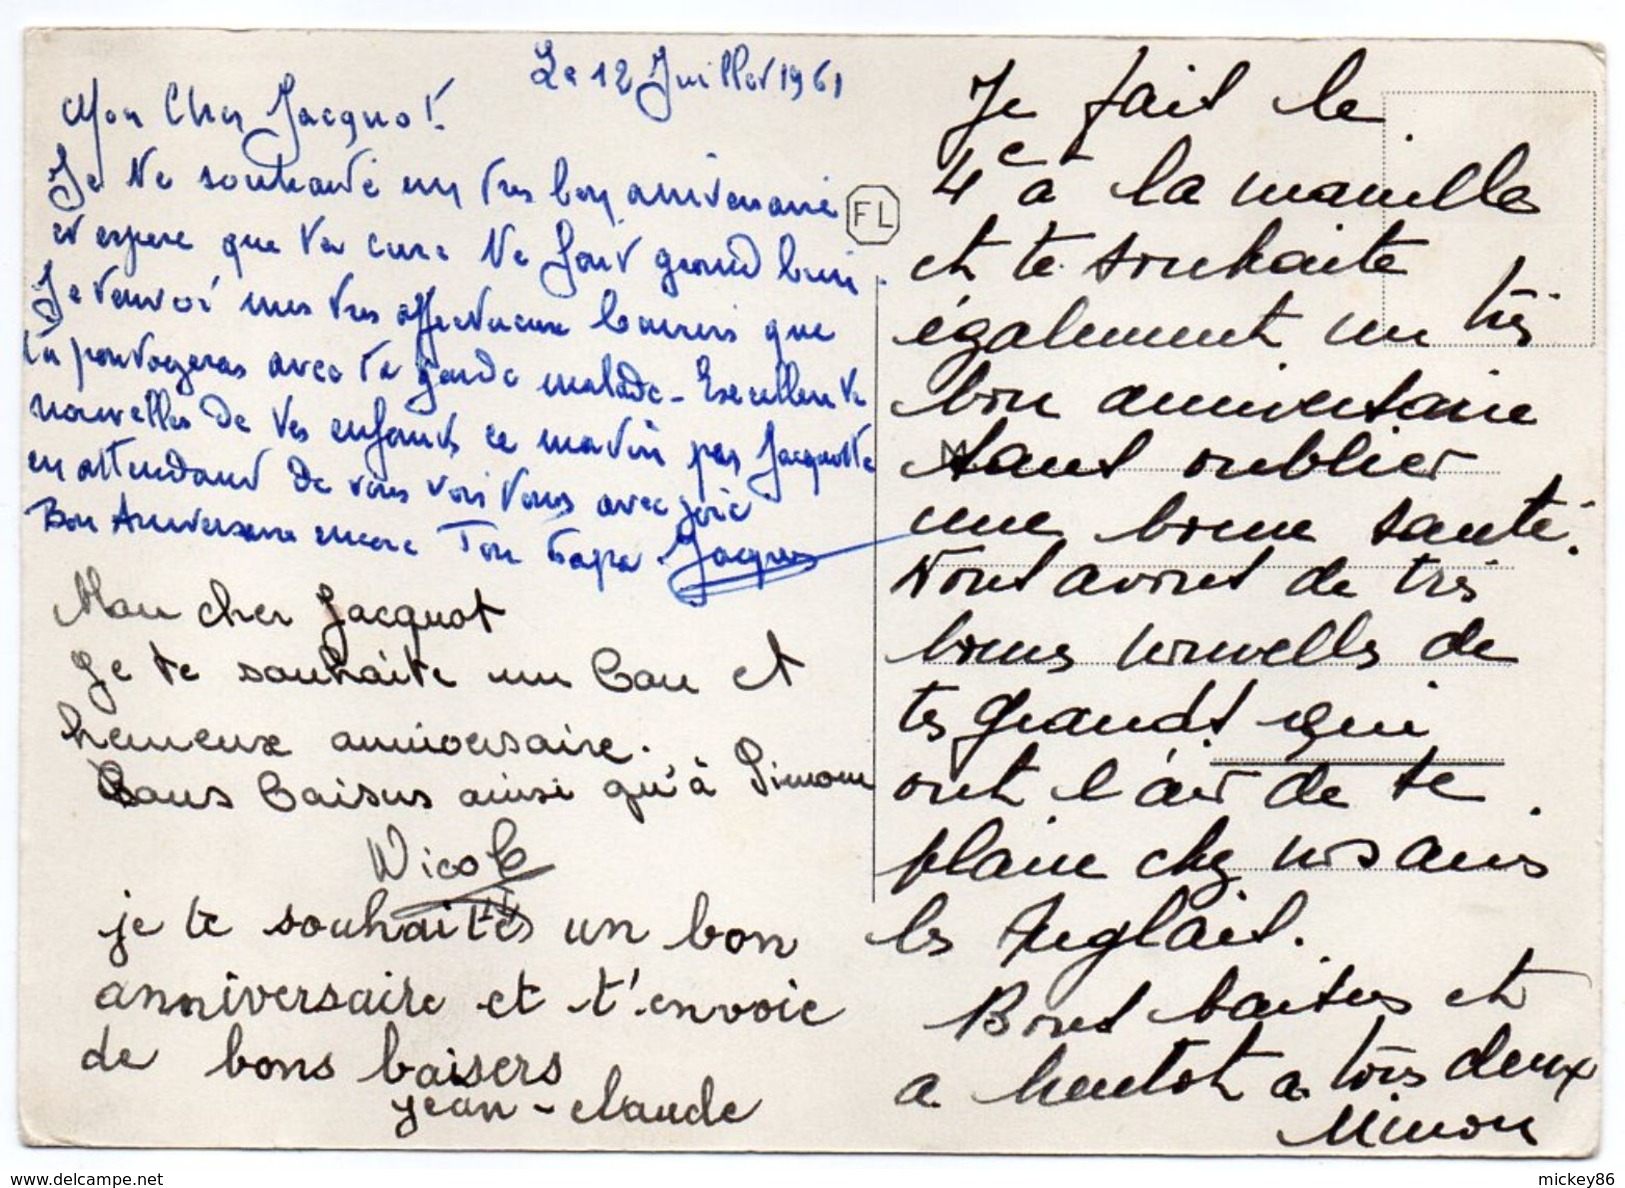 Le 12 Juillet 1961
Mon Cher Jacquot.
Je te souhaite un tres bon anniversaire
et espere que ta cure te fait grand bien.
Je t'envoi mes tres affectueux baisers que
tu partageras avec ta garde malade - Excellente
nouvelles de tes enfants ce matin par Jacquotte
en attendant de vous voir tous avec joie
Bon Anniversaire encore Ton Papa. Jacques
Mon cher Jacquot
Je te souhaite un bon et
heureux anniversaire.
Bons baisers ainsi qu'à Simone
Nicole
je te souhaites un bon
anniversaire et t'envoie
de bons baisers
jean-claude
FL
Je fais le
4e à la manille
et te souhaite
également un très
bon anniversaire
sans oublier
une bonne santé.
Nous avons de très
bonnes nouvelles de
tes grands qui
ont l'air de se
plaire chez nos amis
les Anglais.
Bons baisers et
a bientot a tous deux
Mimon
mickey86